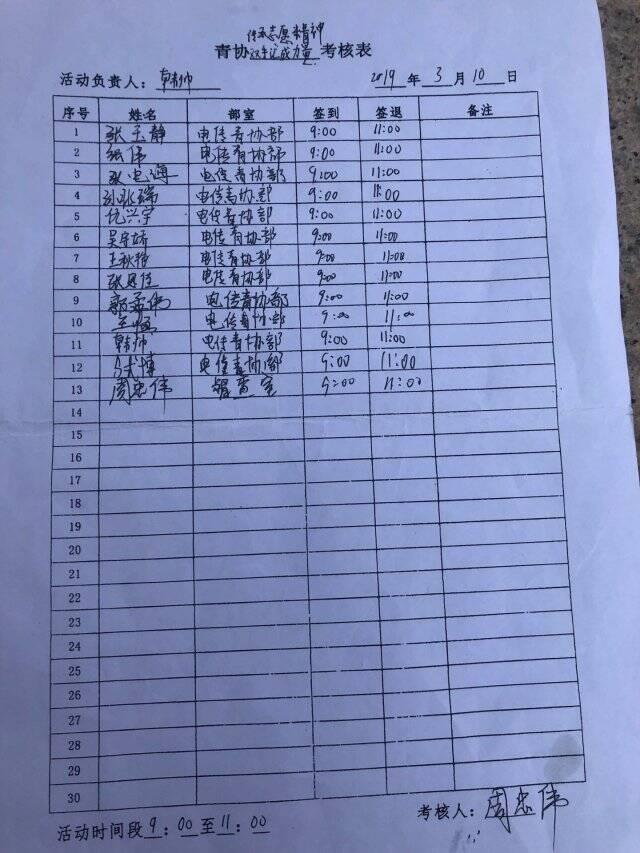 传承志愿精神
青协 汇成力量 考核表
活动负责人： 韩帅 2019 年 3 月 10 日
序号 姓名 部室 签到 签退 备注
1 张玉静 电信青协部 9:00 11:00
2 张伟 电信青协部 9:00 11:00
3 电信青协部 9:00 11:00
4 电信青协部 9:00 11:00
5 仇兴宇 电信青协部 9:00 11:00
6 电信青协部 9:00 11:00
7 电信青协部 9:00 11:00
8 电信青协部 9:00 11:00
9 郭孟伟 电信青协部 9:00 11:00
10 电信青协部 9:00 11:00
11 韩帅 电信青协部 9:00 11:00
12 电信青协部 9:00 11:00
13 周忠伟 督查室 9:00 11:00
14
15
16
17
18
19
20
21
22
23
24
25
26
27
28
29
30
考核人：周忠伟
活动时间段 9：00 至 11：00